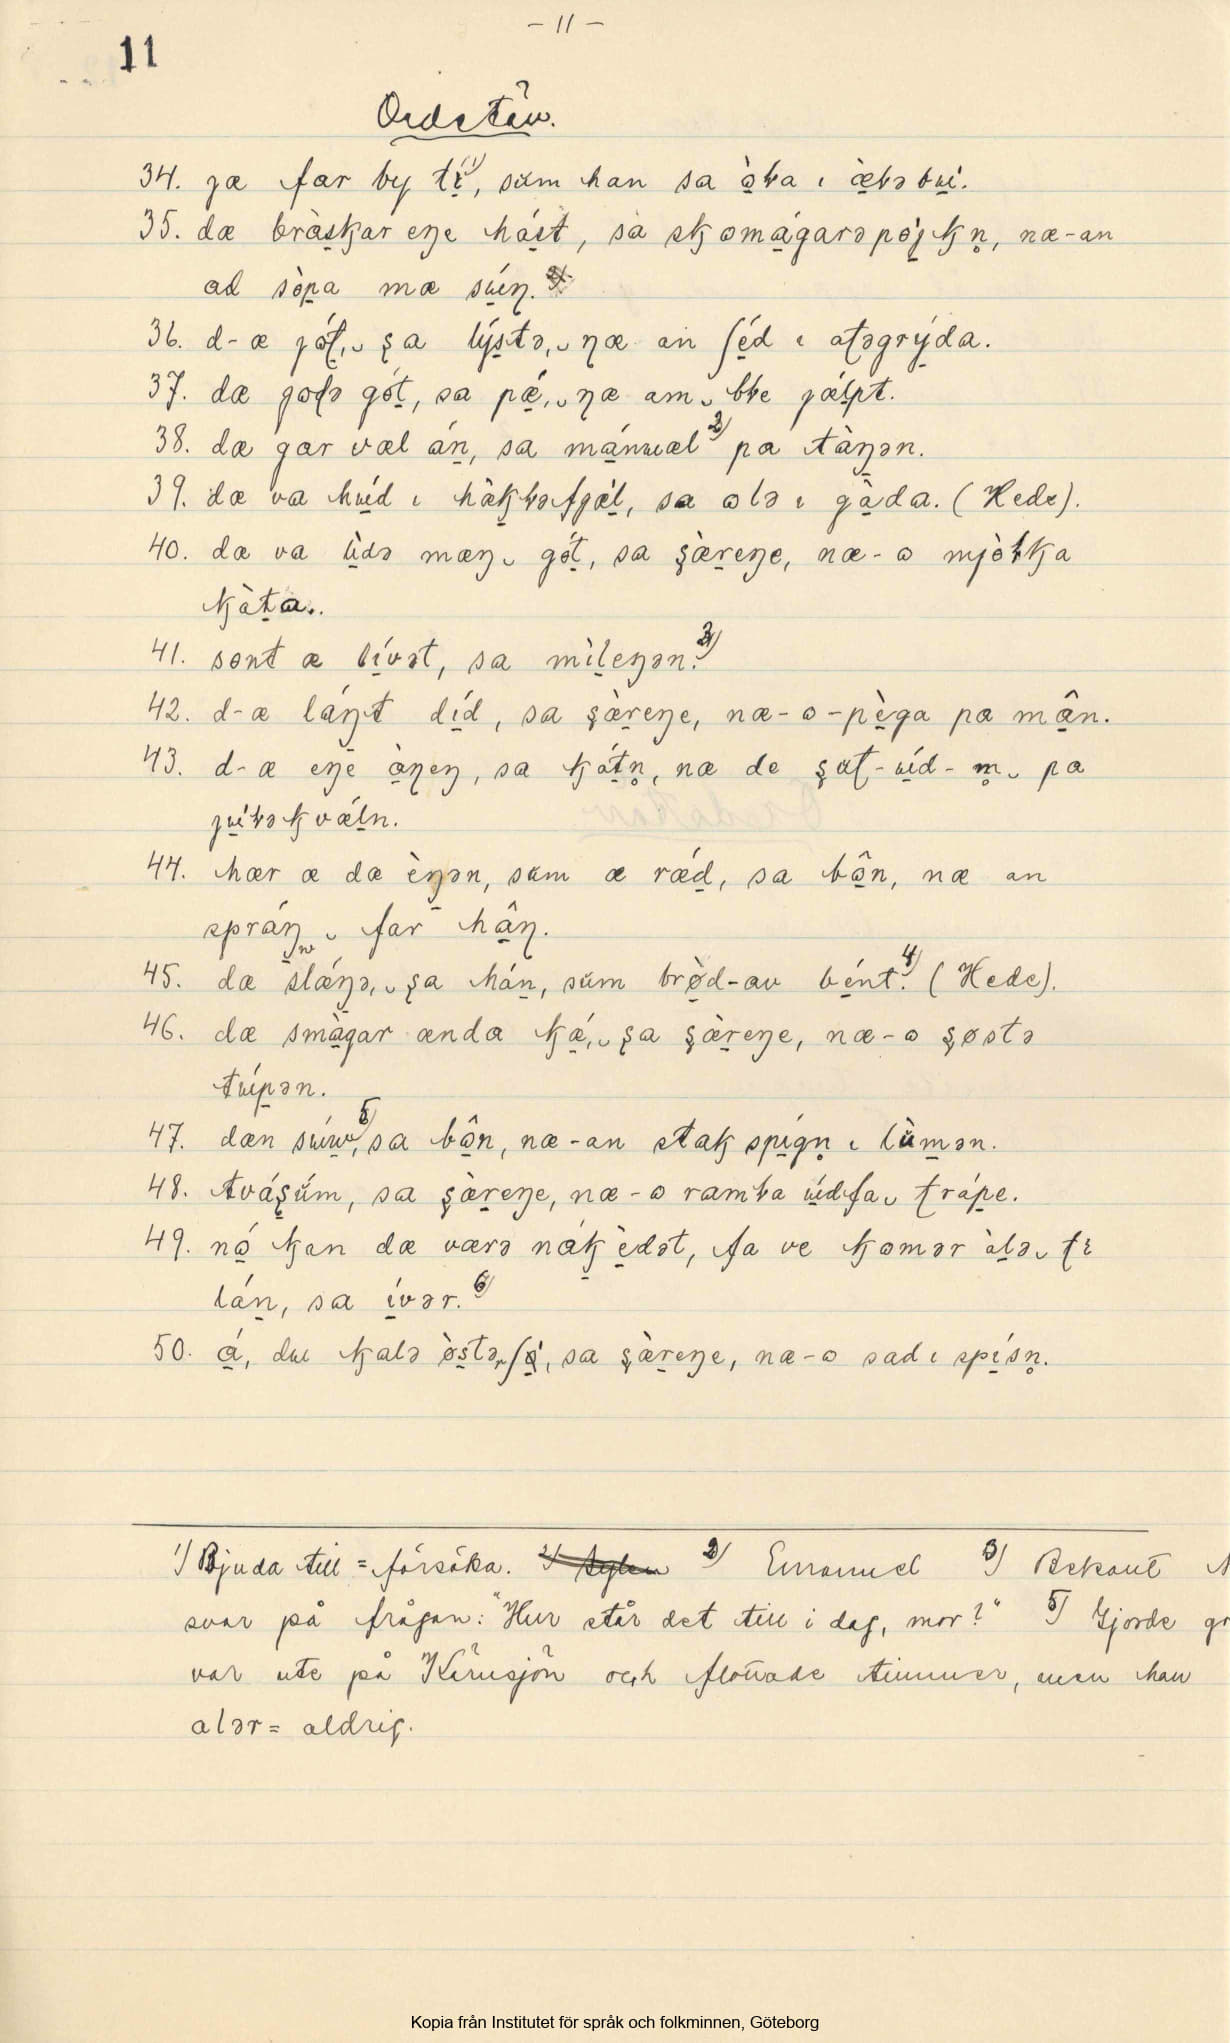 – 11 –
11
Ordstäv.
34. jæ far by tí¹⁾, sum han sa ò̱ka ɩ æ̀kə bɯí.
35. dæ bràskar eŋe hást, sa skomágarə pójkn̥, næ-an
ad sòpa mæ sɯíŋ.
36. d-æ jóƭ, ş a lýstə, ŋæ an ſéd ɩ aƭəgrýda.
37. dæ goƭə gót, sa pǽ, ŋæ am bke jǽƚpt.
38. dæ gar væl án, sa mánɯæl²⁾ pa tàŋən.
39. dæ va hɯíd ɩ hàkkəfjǽl, sa olə ɩ gàda. (Hede).
40. dæ va ùdə mæŋ gót, sa şæ̀reŋe, næ-o mjòkka
kàta.
41. sont æ lívət, sa mìleŋən.³⁾
42. d-æ láŋt díd, sa şæ̀reŋe, næ-o-pèga pa mân.
43. d-æ eŋe àŋeŋ, sa kátn̥, næ de şɯƭ-ɯíd-m̥ pa
jɯíkəkvǽln.
44. hær æ dæ èŋən, sum æ rǽd, sa bôn, næ an
spráŋ far hâŋ.
45. dæ slǽŋə, şa hán, sum brø̀d-av bént.⁴⁾ (Hede).
46. dæ smàgar ænda kǽ, şa şæ̀reŋe, næ-o şøstə
tɯípən.
47. dæn sɯ́ɯw⁵⁾, sa bôn, næ-an stak spígn̥ ɩ lùmən.
48. tváşúm, sa şæ̀reŋe, næ-o ramka ɯídfa trápe.
49. nó kan dæ værə nák èdət, fa ve komər àlə ti
lán, sa ívər.⁶⁾
50. á, dɯ kalə òstə, ſǿ, sa şæ̀reŋe, næ-o sad ɩ spísn̥.
¹⁾ Bjuda till = försöka. ²⁾ Emanuel ³⁾ Bekant
svar på frågan: "Hur står det till i dag, mor?" ⁵⁾ Gjorde
var ute på Kärnsjön och flottade timmer, men han
alər = aldrig.
Kopia från Institutet för språk och folkminnen, Göteborg